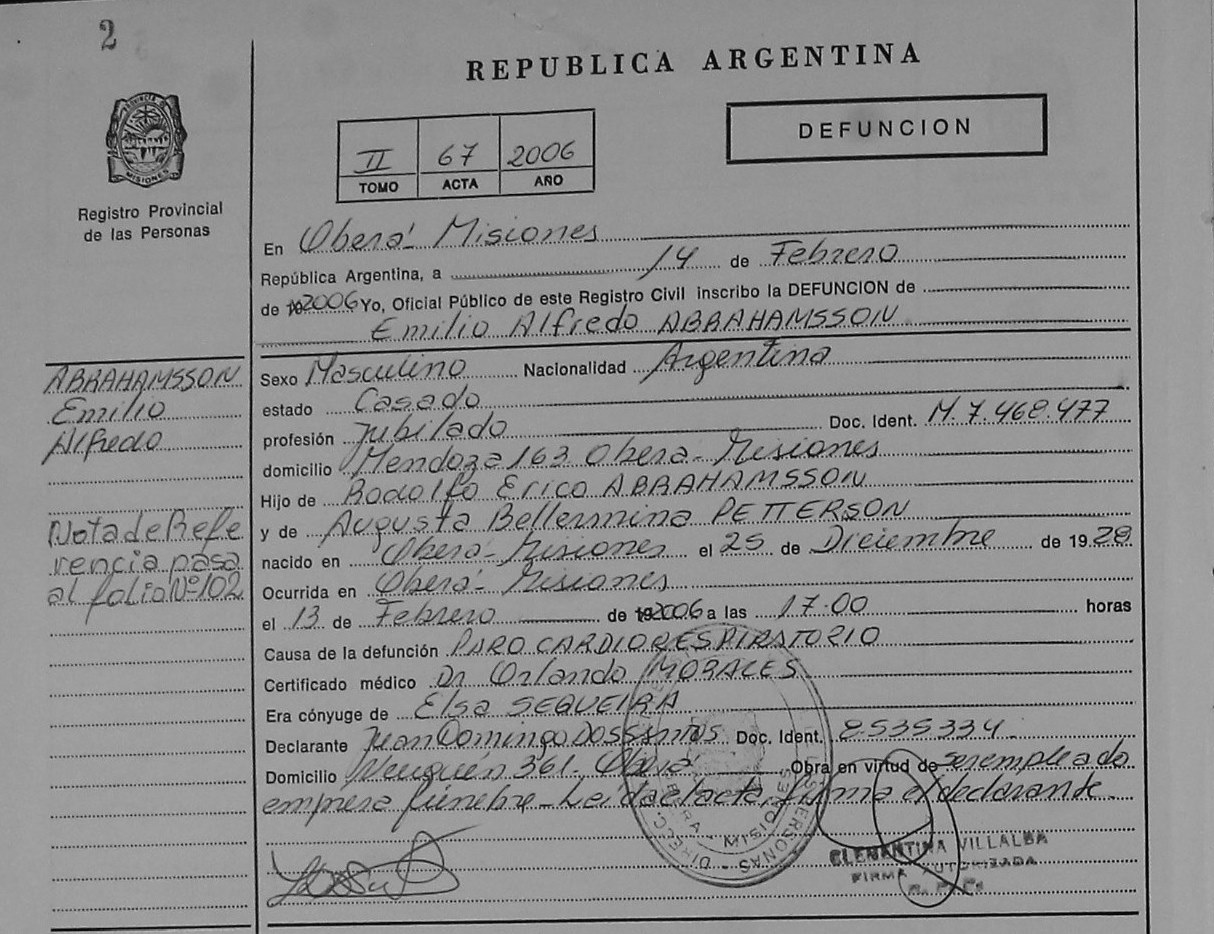 2
REPUBLICA ARGENTINA
DEFUNCION
II 67 2006
TOMO ACTA AÑO
PROVINCIA DE
MISIONES
Registro Provincial
de las Personas
En Oberá - Misiones
República Argentina, a 14 de Febrero
de 2006 Yo, Oficial Público de este Registro Civil inscribo la DEFUNCION de
Emilio Alfredo ABRAHAMSSON
ABRAHAMSSON
Emilio
Alfredo
Nota de Refe
rencia pasa
al folio Nº 102
Sexo Masculino Nacionalidad Argentina
estado Casado
profesión Jubilado Doc. Ident. M. 7.468.477
domicilio Mendoza 163 Obera - Misiones
Hijo de Rodolfo Erico ABRAHAMSSON
y de Augusta Bellermina PETTERSON
nacido en Oberá - Misiones el 25 de Diciembre de 1928
Ocurrida en Oberá - Misiones
el 13 de Febrero de 2006 a las 17.00 horas
Causa de la defunción PARO CARDIORESPIRATORIO
Certificado médico Dr Orlando MORALES
Era cónyuge de Elsa SEQUEIRA
Declarante Juan Domingo DOS SANTOS Doc. Ident. 8535334
Domicilio Neuquén 361 Obera Obra en virtud de ser empleado
empresa fúnebre - Leida el acta, firma el declarante
CLEMENTINA VILLALBA
FIRMA AUTORIZADA
R. P. P.